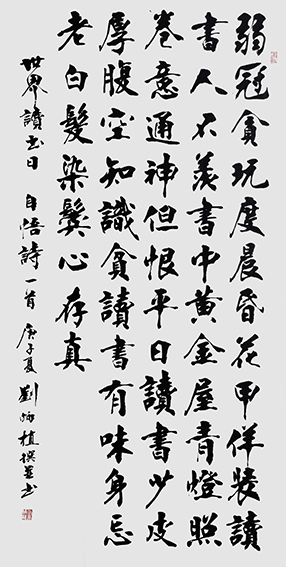 弱冠貪玩度晨昏花甲佯裝讀
書人不羨書中黃金屋青燈照
卷意通神但恨平日讀書少皮
厚腹空知識貧讀書有味身忘
老白髮染鬢心存真
世界讀书日 自悟詩一首 庚子夏 劉 植撰並书